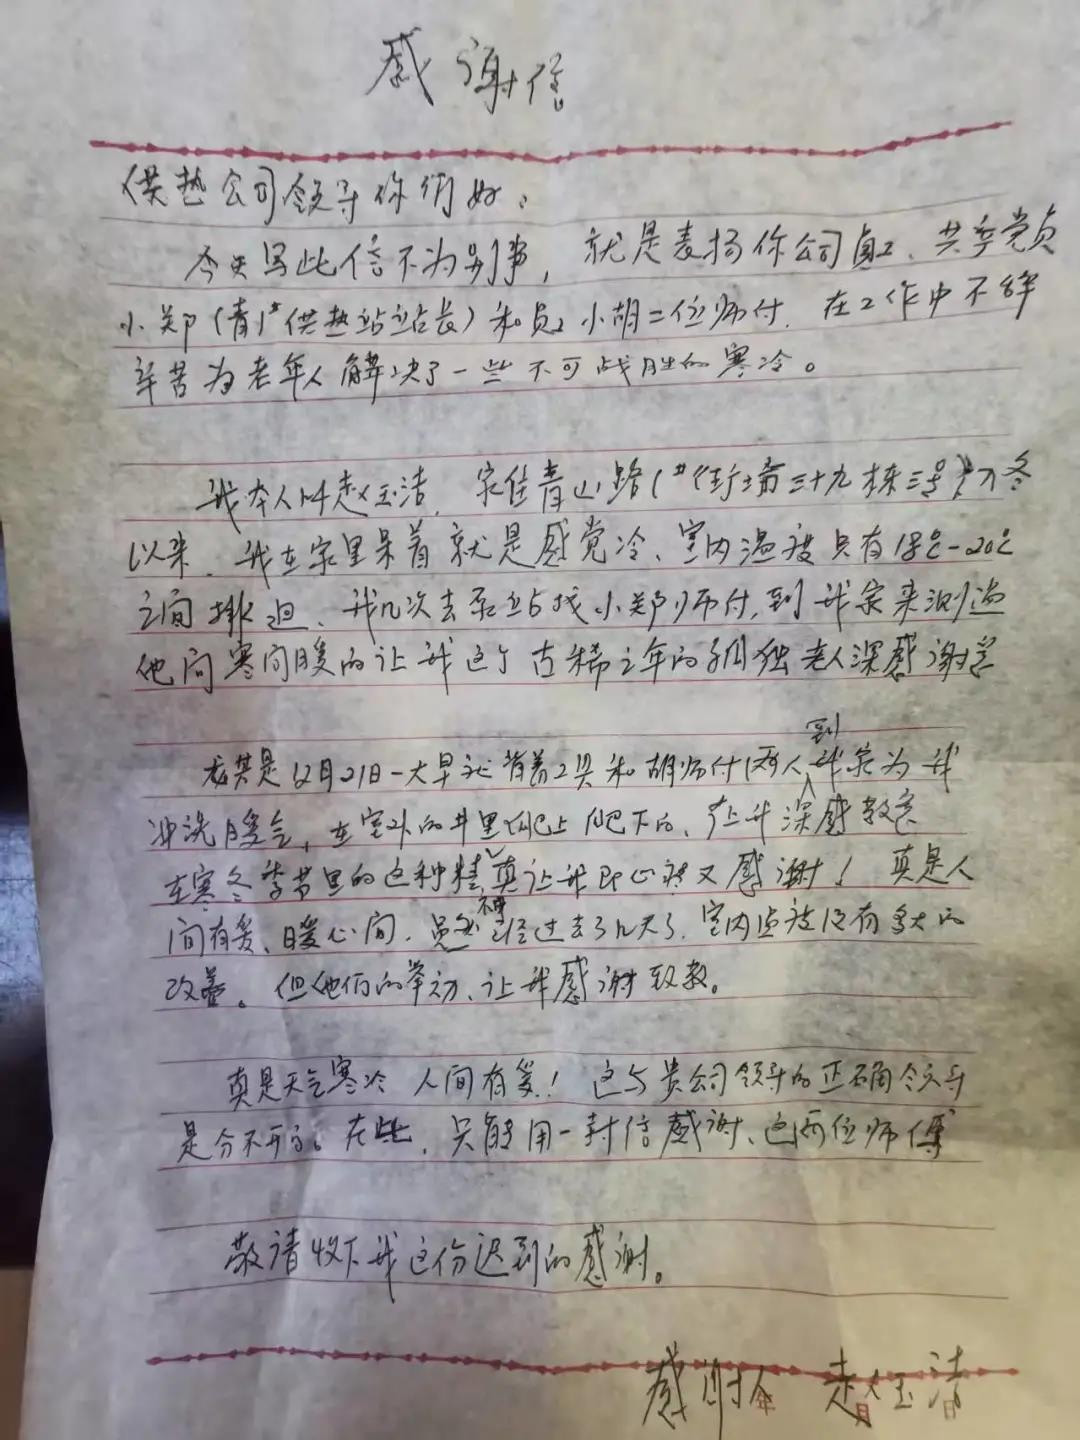 感谢信
供热公司领导你们好：
今天写此信不为别事，就是表扬你公司员工、共产党员
小郑（青1#供热站站长）和员工小胡二位师付．在工作中不辞
辛苦为老年人解决了一些不可战胜的寒冷。
我本人叫赵玉洁．家住青山路1#街坊三十九栋三号，入冬
以来、我在家里呆着就是感觉冷、室内温度只有18℃-20℃
之间排迴、我几次去泵站找小郑师付，到我家来测温
他问寒问暖的让我这个古稀之年的孤独老人深感谢意
尤其是12月21日一大早就背着工具和胡师付两人到我家为我
冲洗暖气，在室外的井里爬上爬下的、让我深感敬意
在寒冬季节里的这种精神真让我即心疼又感谢！真是人
间有爱、暖心间．虽然经过去了几天了．室内温度没有多大的
改善。但他们的举动、让我感谢致敬。
真是天气寒冷 人间有爱！这与贵公司领导的正确领导
是分不开的。在此，只能用一封信感谢、这两位师傅
敬请收下我这份迟到的感谢。
感谢人 赵玉洁
年 月 日